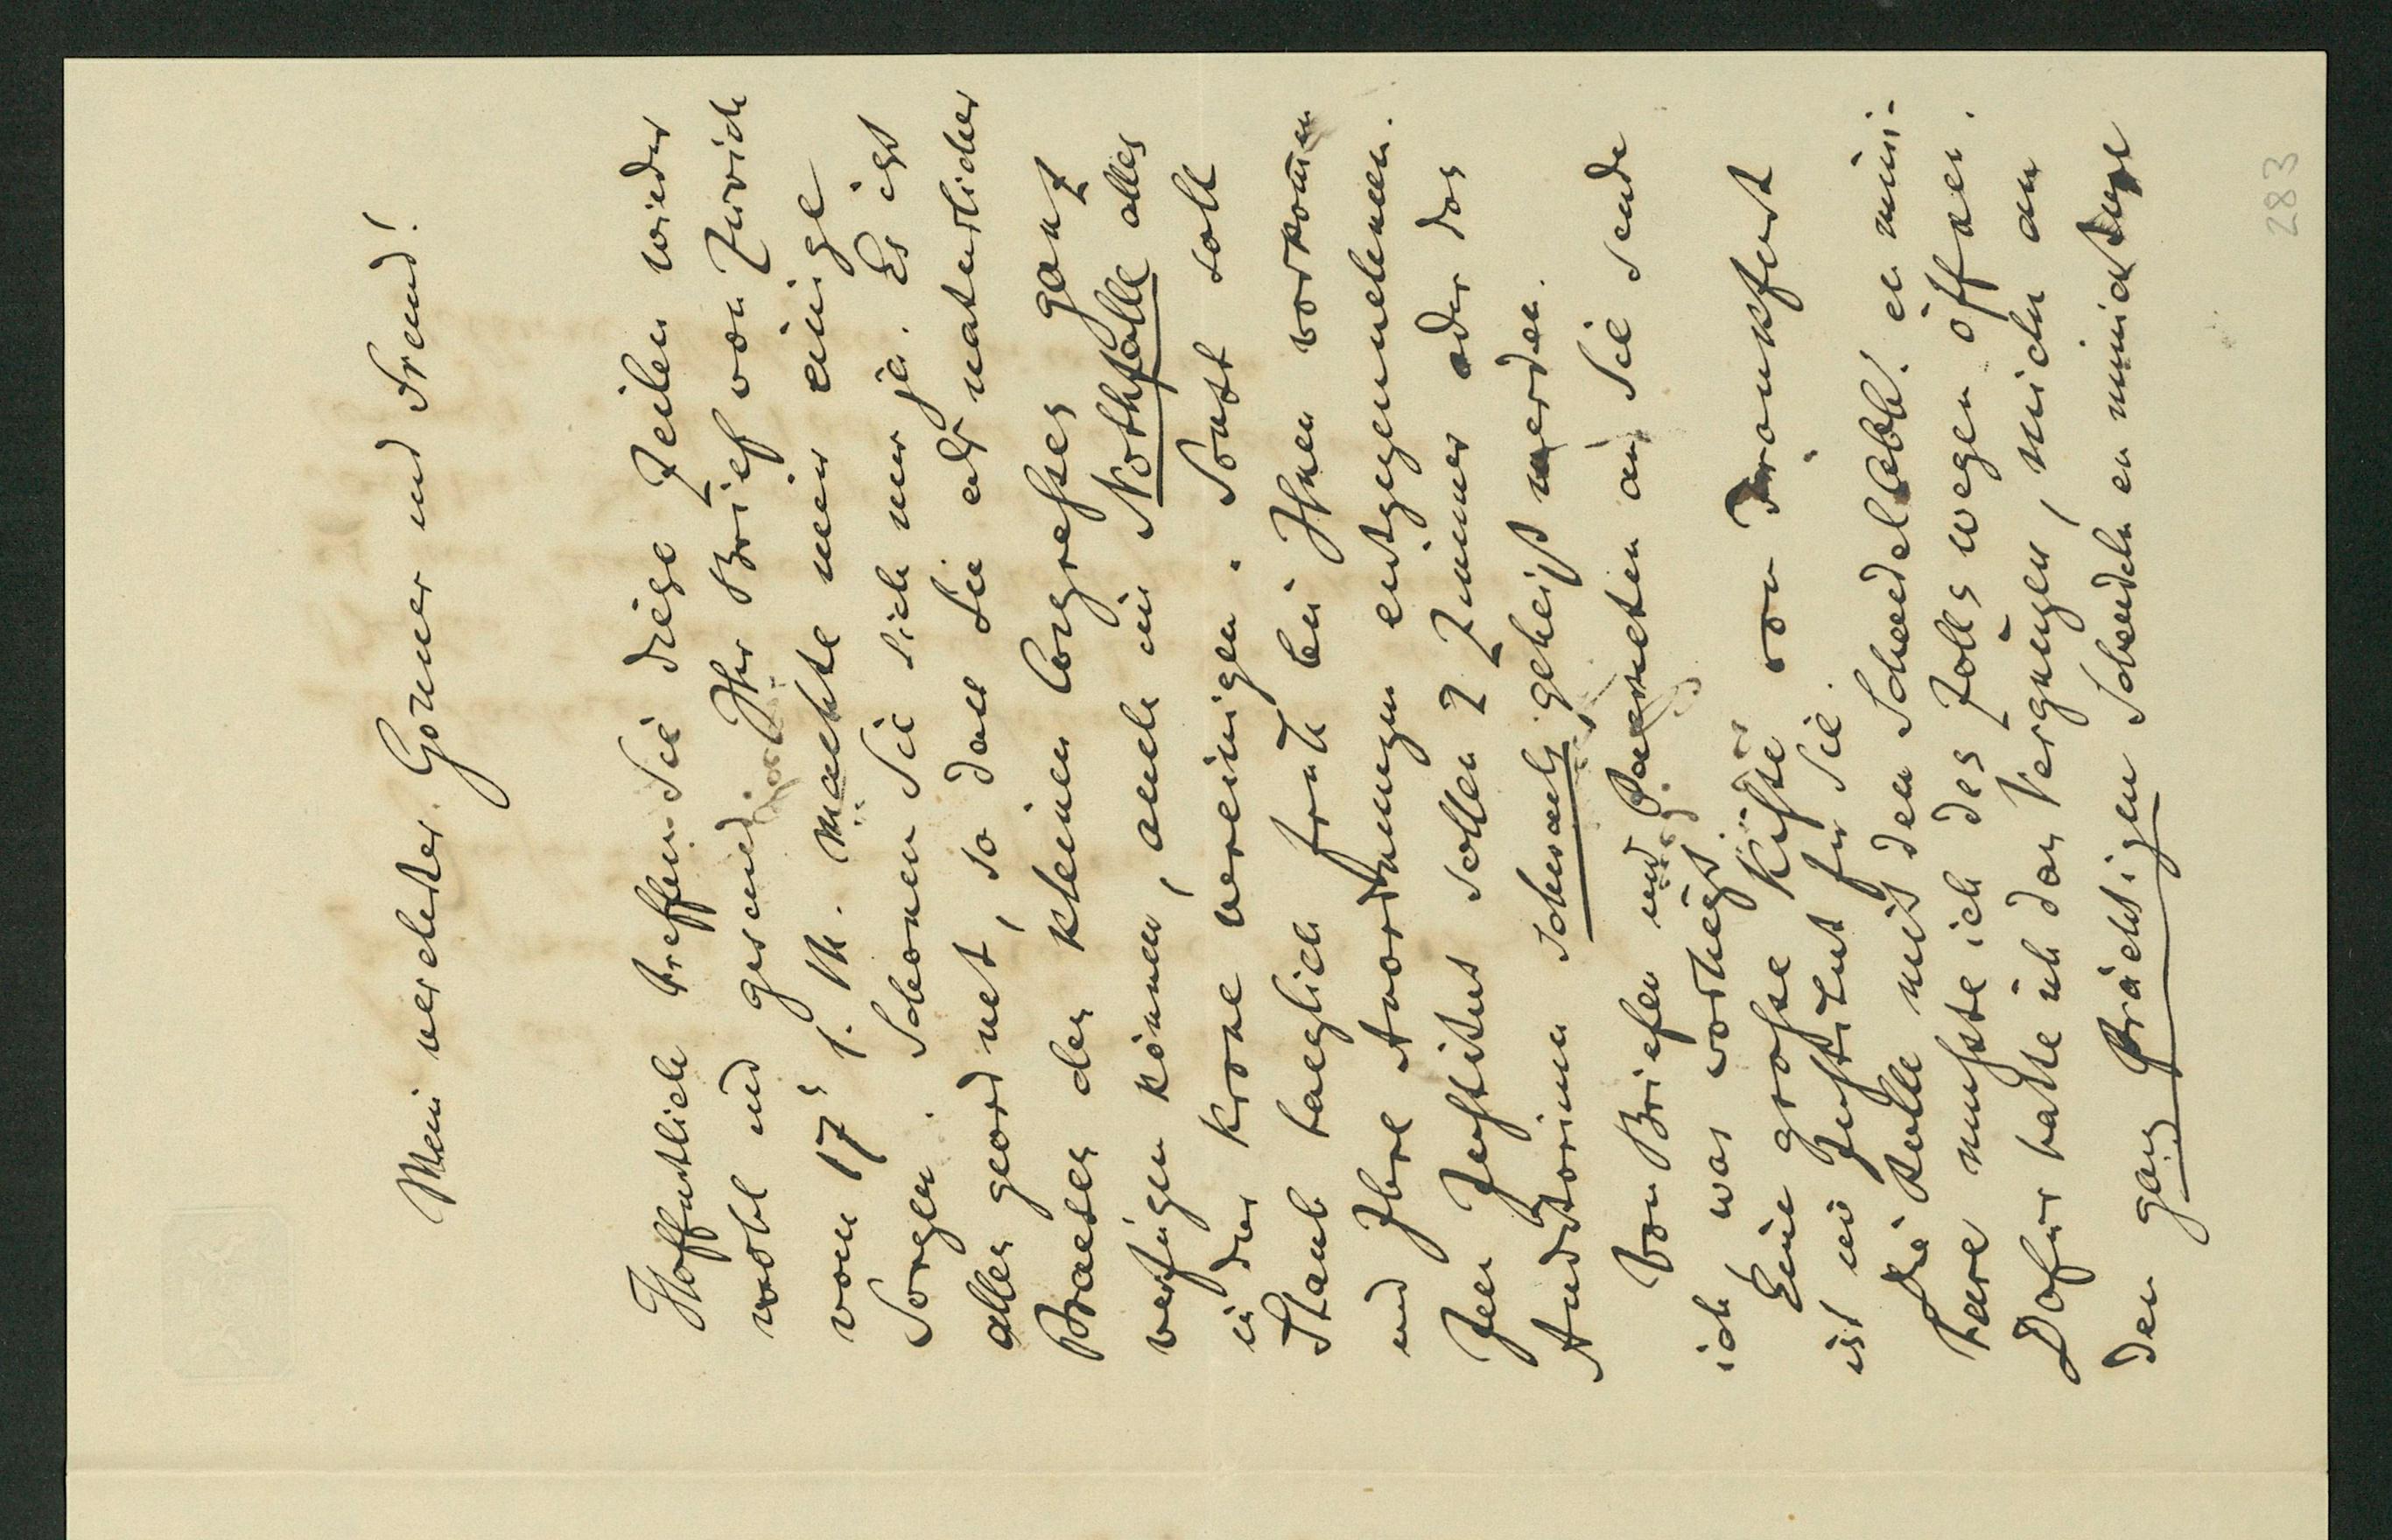 283
Mein verehrter Gönner und Freund!
Hoffentlich treffen Sie diese Zeilen wieder
wohl und gesund. Ihr Brief von Zürich
vom 17t l. M. machte mir einige
Sorgen. Schonen Sie sich nur ja. Es ist
alles geordnet, so dass Sie als natürlicher
Praeses des kleinen Congresses ganz
verfügen können, auch im Nothfalle alles
in der Krone vereinigen. Sonst soll
Staub taeglich früh bei Ihnen vorkom̅en
und Ihre Anordnungen entgegennehmen.
Im Institut sollen 2 Zimmer oder das
Auditorium schwach geheizt werden.
Von Briefen und Paqueten an Sie sende
ich was vorliegt.
Eine grosse Kiste von Frankfurt
ist im Institut für Sie.
Die Rolle mit dem Schaedel en mini-
ture musste ich des Zolls wegen öffnen.
Dafür hatte ich das Vergnügen, mich an
dem ganz prächtigen Schaedel en miniature